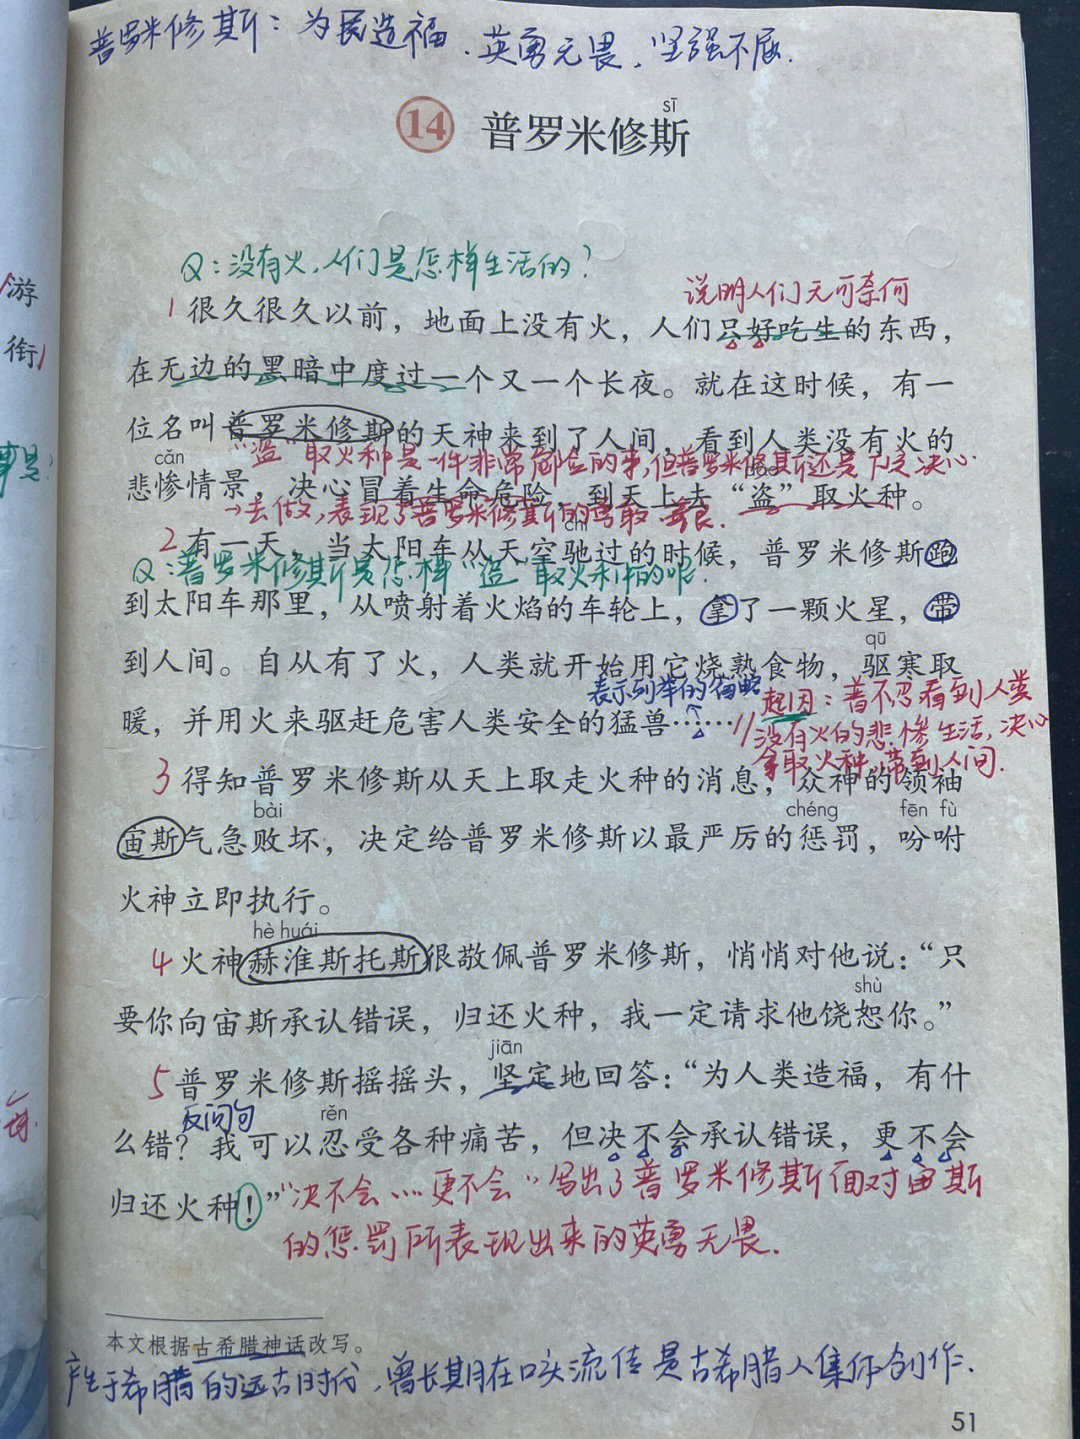 普罗米修斯：为民造福．英勇无畏．坚强不屈．
sī
14 普罗米修斯
Q：没有火，人们是怎样生活的？
游
说明人们无可奈何
1 很久很久以前，地面上没有火，人们只好吃生的东西，
衔
在无边的黑暗中度过一个又一个长夜。就在这时候，有一
位名叫普罗米修斯的天神来到了人间，看到人类没有火的
“盗”取火种是一件非常危险的事，但普罗米修斯还是下定决心．
cǎn dào
悲惨情景，决心冒着生命危险，到天上去“盗”取火种。
→去做，表现了普罗米修斯的勇敢
chí
2 有一天，当太阳车从天空驰过的时候，普罗米修斯跑
Q：普罗米修斯是怎样“盗”取火种的呢．
到太阳车那里，从喷射着火焰的车轮上，拿了一颗火星，带
qū
到人间。自从有了火，人类就开始用它烧熟食物，驱寒取
表示列举的省略
起因：普不忍看到人类
暖，并用火来驱赶危害人类安全的猛兽……
没有火的悲惨生活，决心
拿取火种，带到人间．
3 得知普罗米修斯从天上取走火种的消息，众神的领袖
bài chéng fēn fù
宙斯气急败坏，决定给普罗米修斯以最严厉的惩罚，吩咐
火神立即执行。
hè huái
4 火神赫淮斯托斯很敬佩普罗米修斯，悄悄对他说：“只
shù
要你向宙斯承认错误，归还火种，我一定请求他饶恕你。”
jiān
5 普罗米修斯摇摇头，坚定地回答：“为人类造福，有什
反问句 rěn
么错？我可以忍受各种痛苦，但决不会承认错误，更不会
归还火种！”
“决不会……更不会”写出了普罗米修斯面对宙斯
的惩罚所表现出来的英勇无畏．
本文根据古希腊神话改写。
产生于希腊的远古时代，曾长期在口头流传是古希腊人集体创作．
51